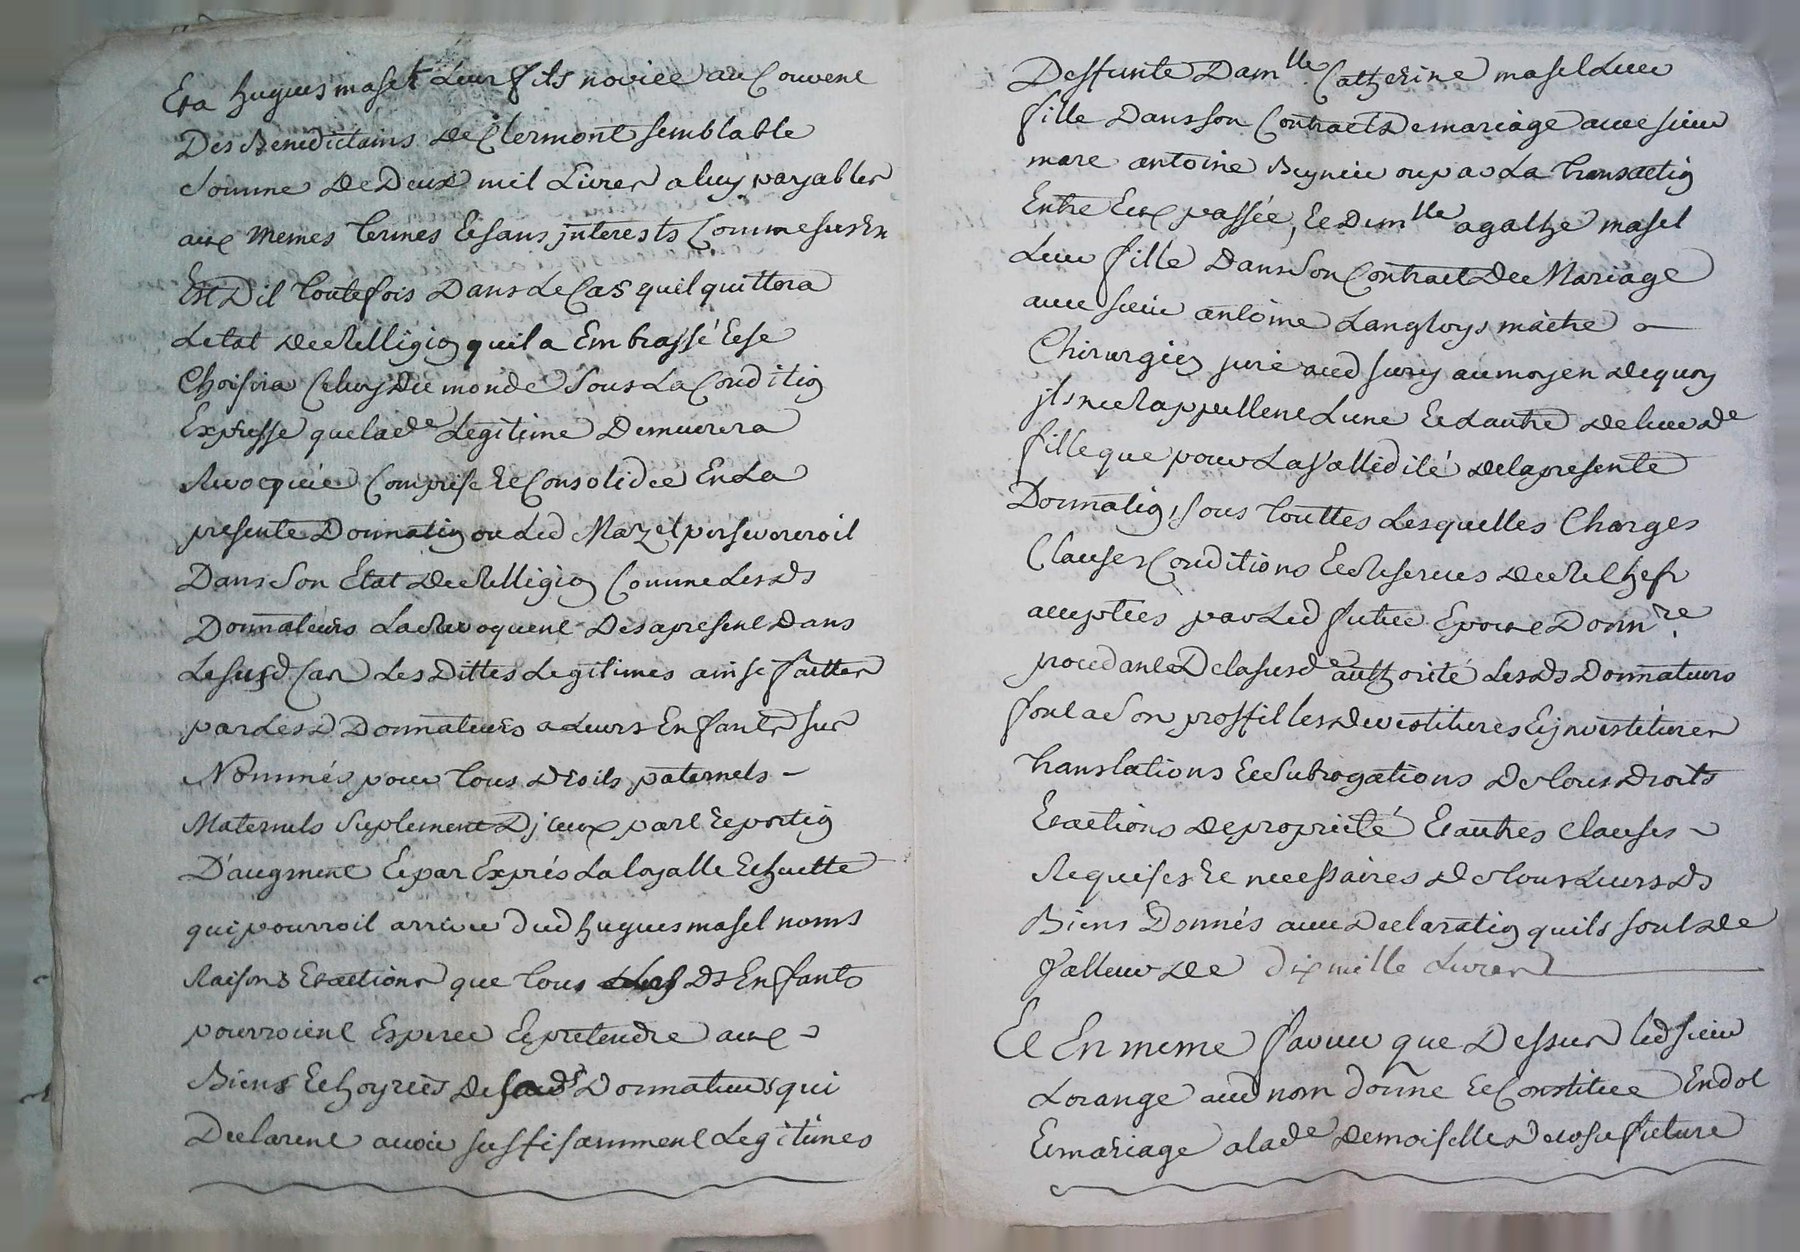 Et a hugues masel Leur fils novice au Couvent
Des Benedictains de Clermont semblable
Somme de Deux mil Livres a luy payables
aux memes termes Et sans jnterests Comme sus En
Est Dit toutefois Dans Le Cas quil quittera
Letat de Relligion quil a Embrassé Et se
Choisira Celuy Du monde Sous La Condition
Expresse que lade Legitime Demurera
Revocquée Comprise Et Consolidee En La
presente Donnation ou Led Mazel persevereroit
Dans Son Etat de Relligion Comme Lesds
Donnateurs La Revoquent Des apresent Dans
Le susd Cas Les Dittes Legitimes ainsi faittes
par Lesd Donnateurs a Leurs Enfants sur
Nommés pour tous droits paternels -
Maternels suplement Djceux part Et portion
D'augment Et par Exprés La loyalle Echeutte
qui pourroit arriver dud hugues masel noms
Raisons Et actions que tous Ds Enfants
pourroient Esperer Et pretendre aux -
Biens Et hoyries des Donnateurs qui
Declarent avoir suffisamment Legitimes
Deffunte Damlle Catherine masel Leur
fille Dans son Contract De mariage avec sieur
marc antoine ou par La transaction
Entre Eux passée, Et Demlle agathe masel
Leur fille Dans Son Contract De Mariage
avec sieur antoine Langloys maitre
Chirurgien juré aud au moyen De quoy
jls ne Rappellent Lune Et Lautre de leur de
fille que pour La Validité de la presente
Donnation, sous touttes Lesquelles Charges
Clauses Conditions Et Reserves de Relhef
acceptées par Led futur Epoux Donnre
procedant De la susde authorité Lesds Donnateurs
font a Son proffit les devestitures Et jnvestitures
translations Et Subrogations De tous Droits
Et actions de proprieté Et autres Clauses -
Requises Et necessaires De tous Leurs ds
Biens Donnés avec Declaration quils sont de
Valleur de dix mille Livres
Et En meme faveur que Dessus led sieur
Lorange aud nom donne Et Constitue En dot
Et mariage a lade demoiselle future